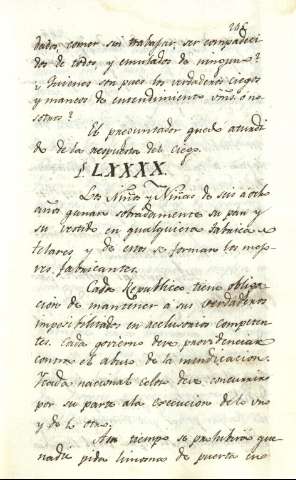 246
dados, comer sin trabajar, ser compadeci-
dos de todos, y emulados de ninguno?
¿Quienes son pues los verdaderos ciegos
y mancos de entendimiento vms. o no-
sotros?
El preguntador quedó aturdi-
do de la respuesta del Ciego.
LXXXX.
Los Niños y Niñas de seis á ocho
años ganan sobradamente su pan y
su vestido en qualquiera fabrica o
telares, y de estos se forman los mejo-
res fabricantes.
Cada Republica tiene obliga-
cion de mantener a sus verdaderos
imposibilitados en acclusorios competen-
tes. Cada govierno deve providenciar
contra el abuso de la mendicacion.
Y cada nacional celoso deve concurrir
por su parte ala execucion de lo uno
y de lo otro.
Aun tiempo se prohibirá que
nadie pida limosna de puerta en